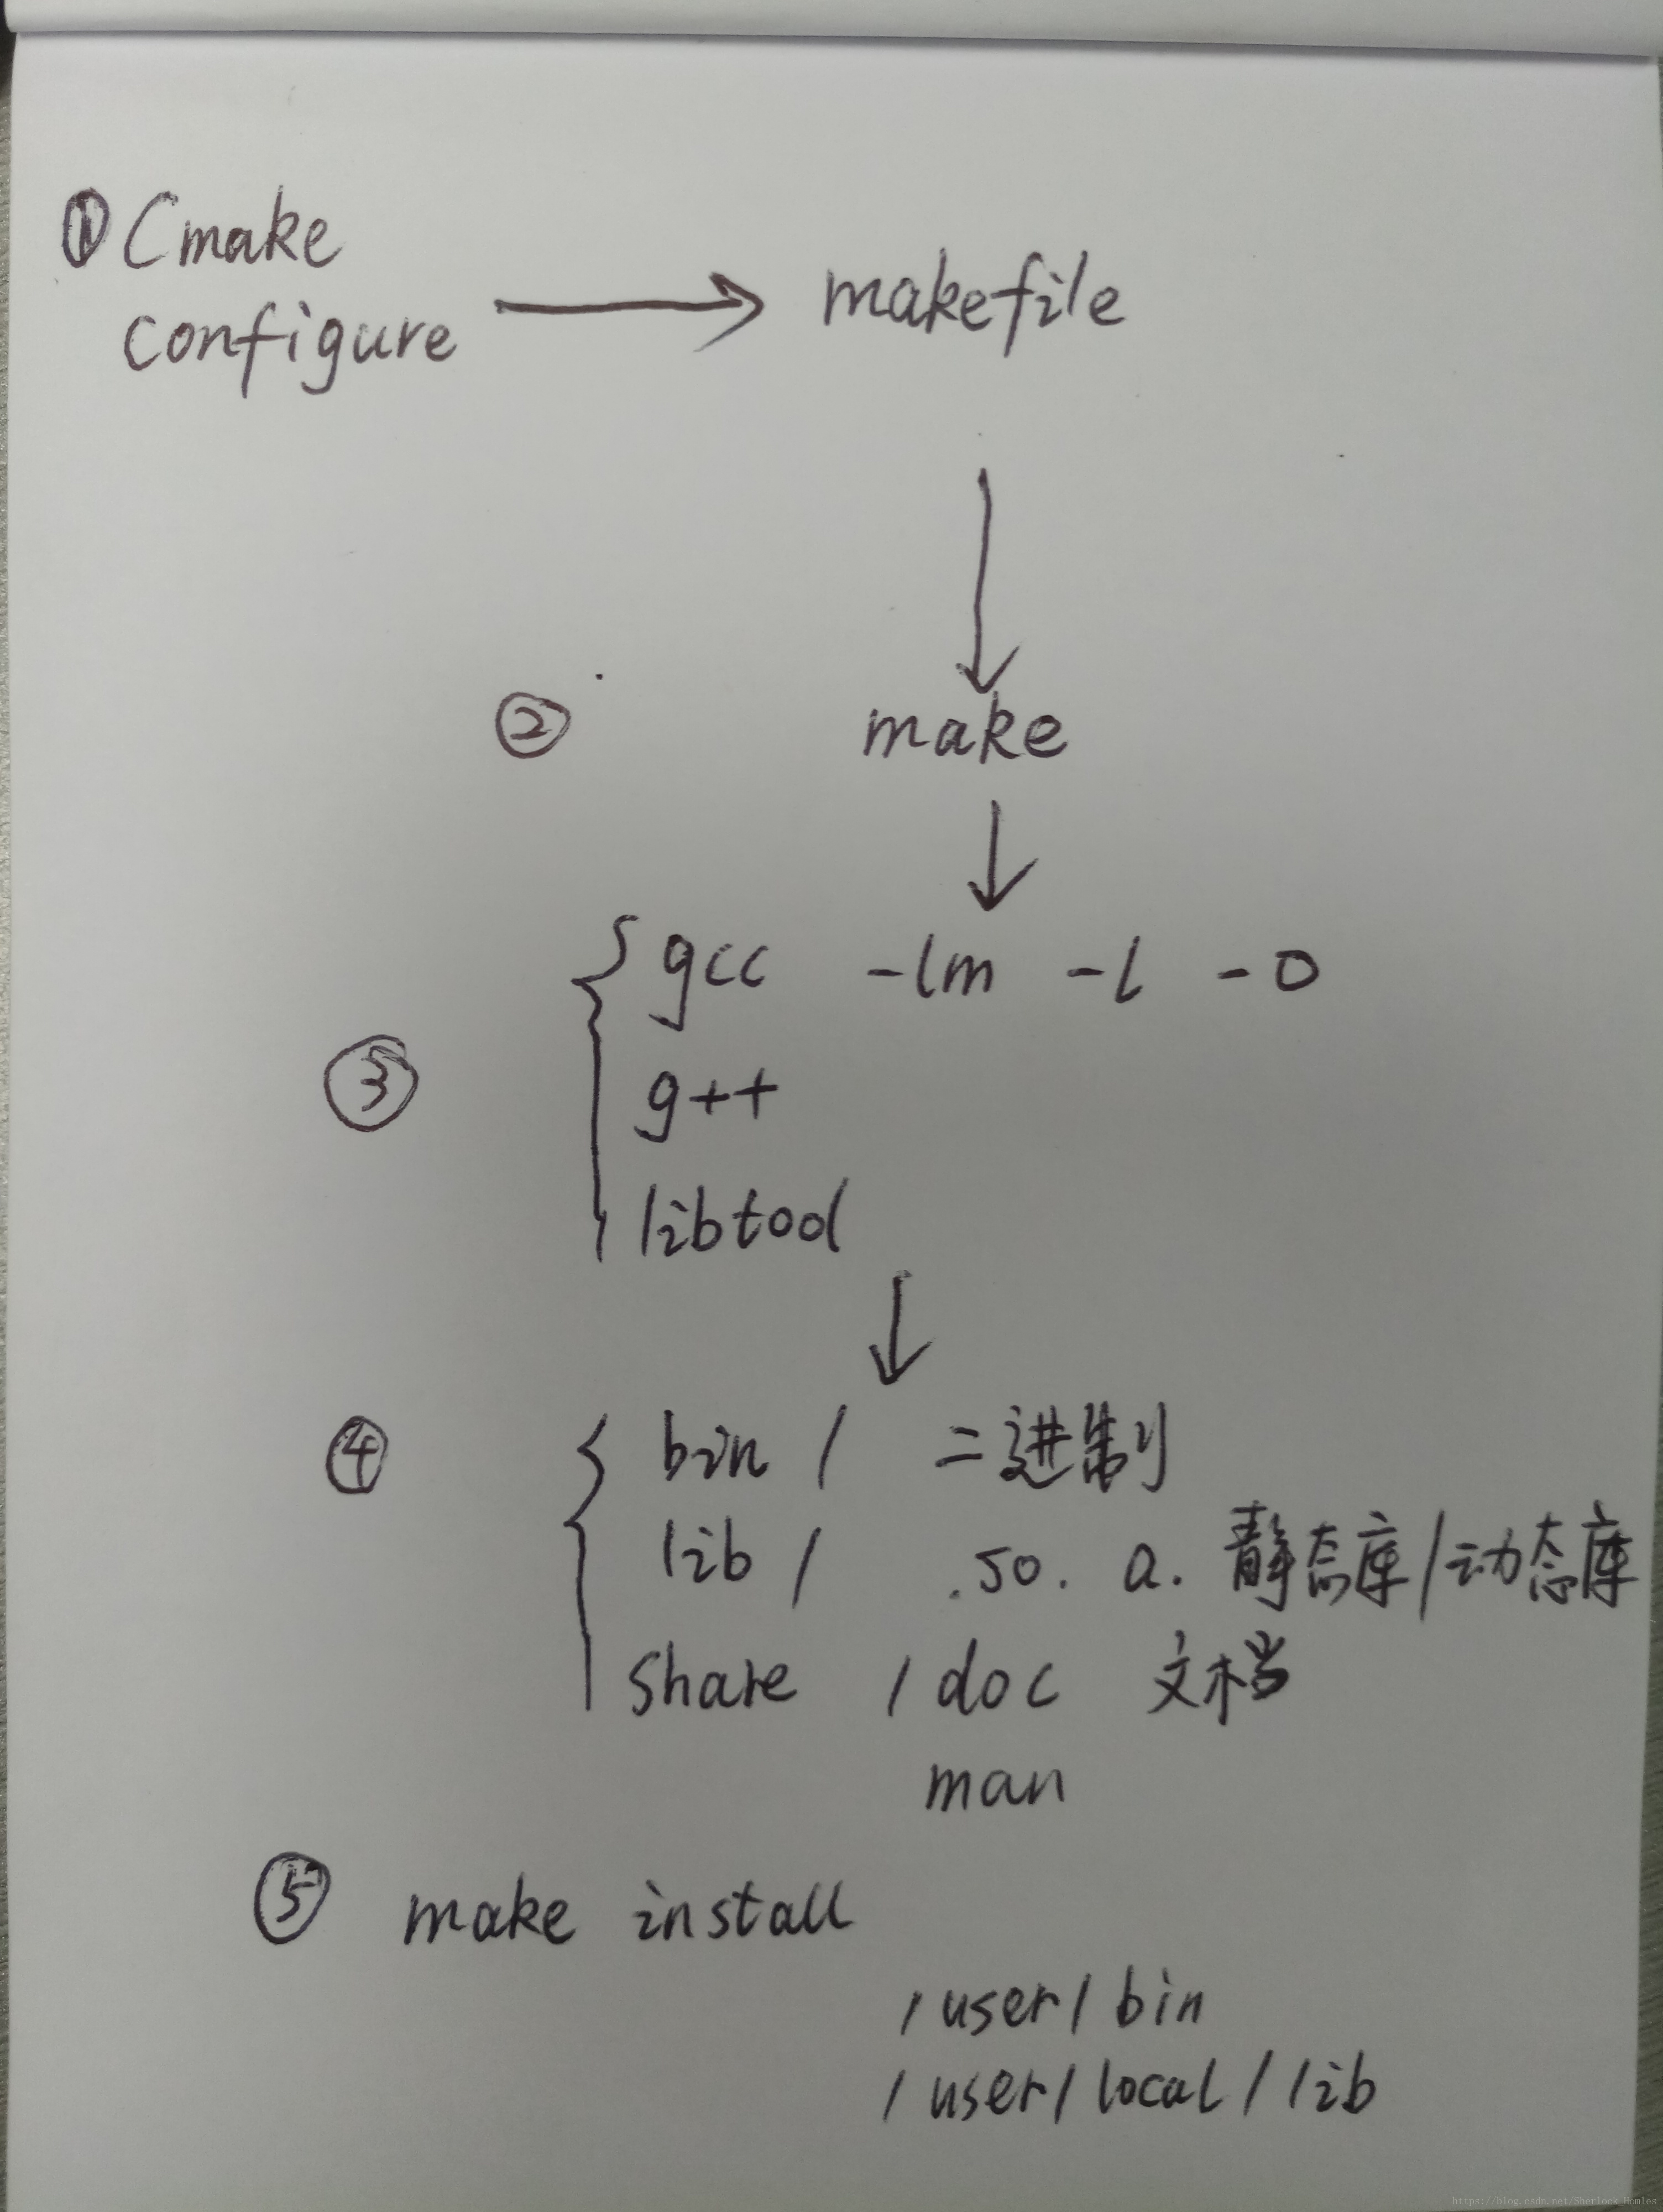 ① Cmake
configure → makefile
② make
③ gcc -lm -l -o
g++
libtool
④ bin / 二进制
lib / .so. a. 静态库/动态库
share / doc 文档
man
⑤ make install
/user/bin
/user/local/lib
https://blog.csdn.net/Sherlock_Homles